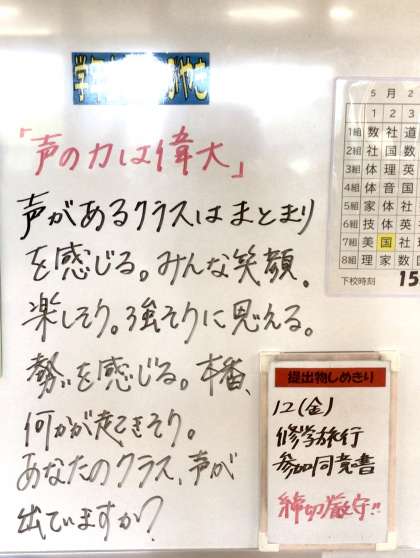 「声の力は偉大」
声があるクラスはまとまり
を感じる。みんな笑顔。
楽しそう。強そうに見える。
勢いを感じる。本番、
何かが起こきそう。
あなたのクラス、声が
出ていますか?
5月2
1 2 3
1組 数 社 道
2組 社 国 数
3組 体 理 英
4組 体 音 国
5組 家 体 社
6組 技 体 英
7組 美 国 社
8組 理 家 数
下校時刻 15
提出物しめきり
12(金)
修学旅行
参加同意書
締切厳守!!